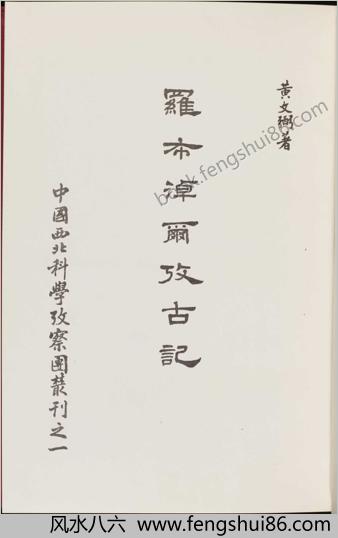 黃文弼著
羅布淖爾攷古記
中國西北科學攷察團叢刊之一
book.fengshui86.com
风水八六 www.fengshui86.com